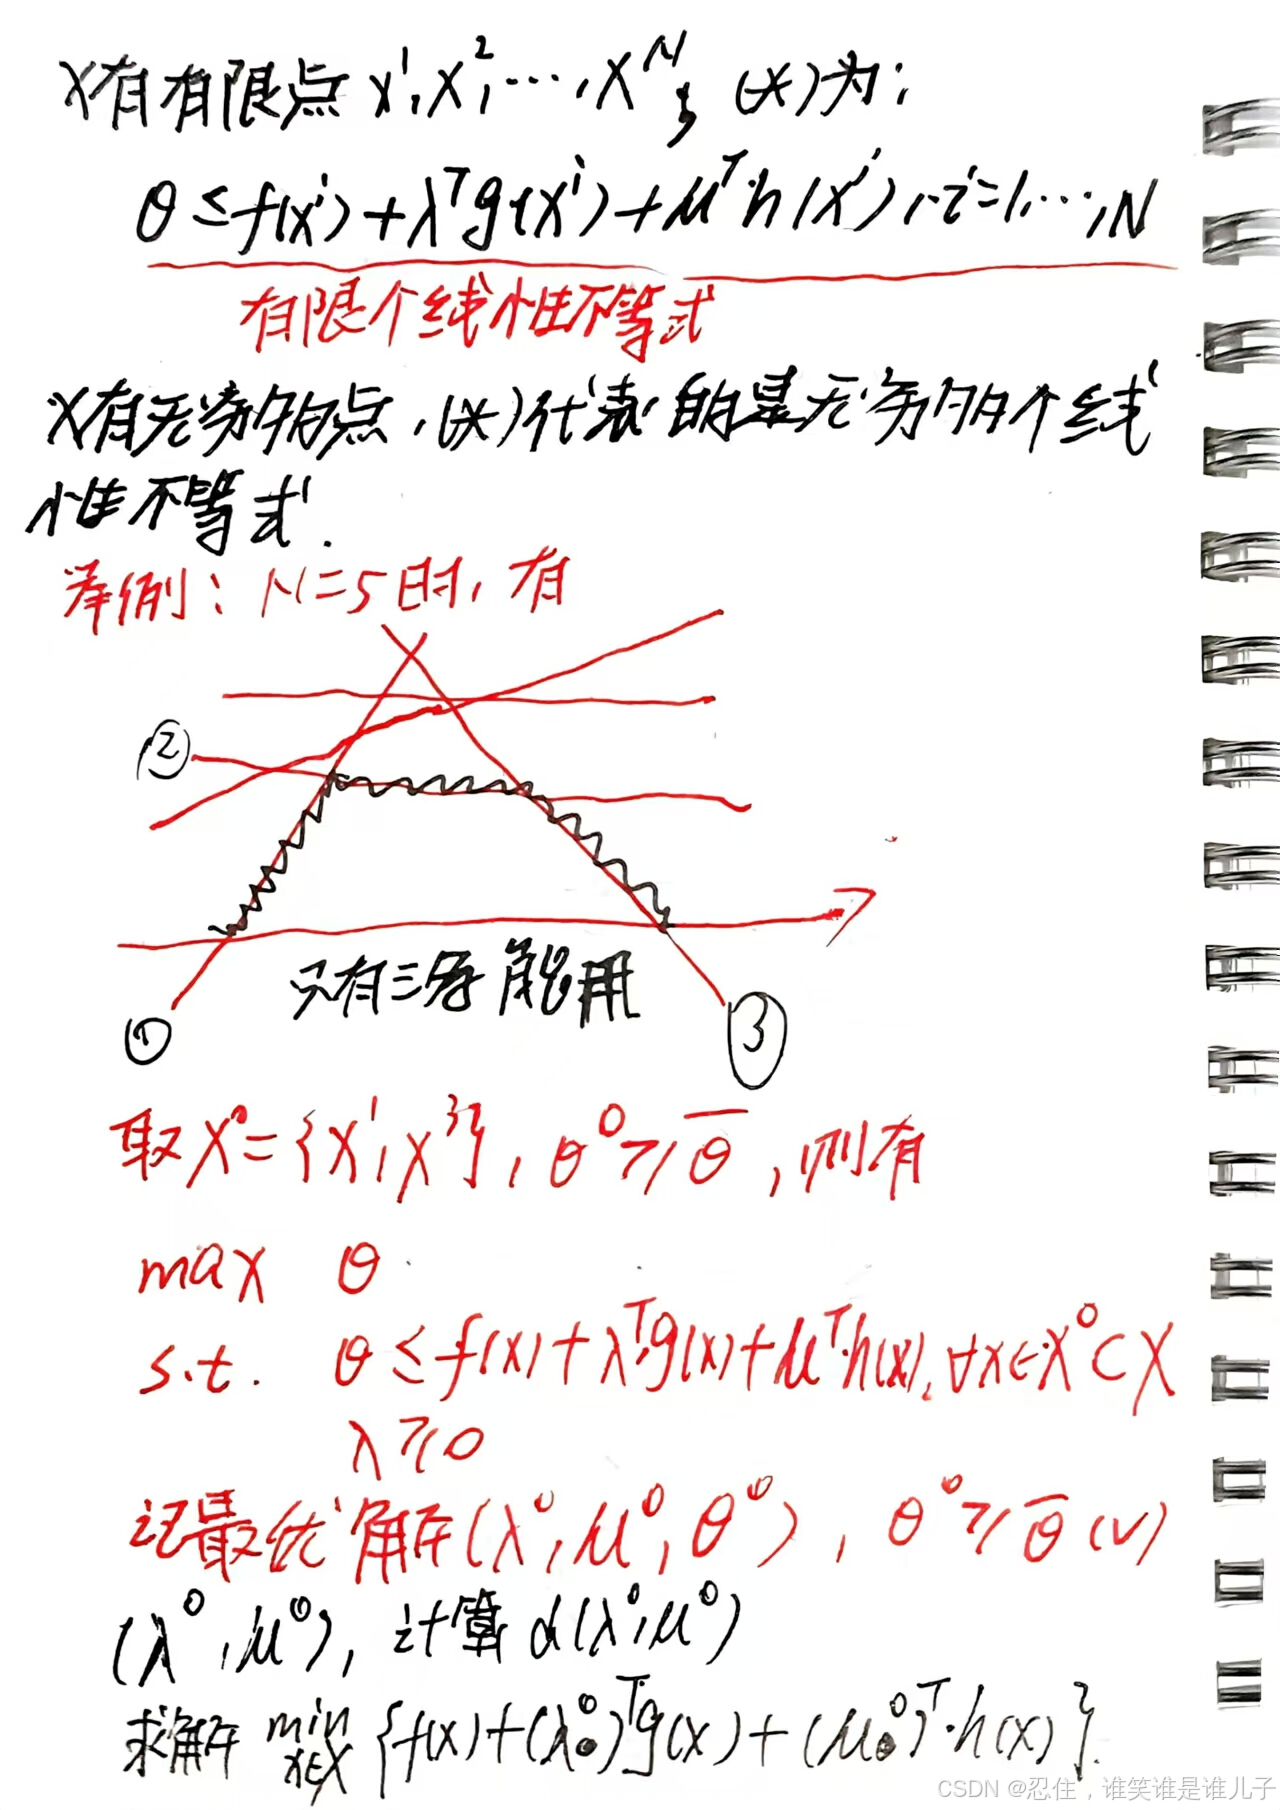 X有有限点 x¹,x²,…,x^N, (*)为:
θ ≤ f(xⁱ) + λᵀg(xⁱ) + μᵀ·h(xⁱ), i=1,…,N
有限个线性不等式
X有无穷多的点,(*)代表的是无穷多个线
性不等式.
举例: N=5时, 有
②
只有三条能用
① ③
取X⁰={x¹,x³}, θ⁰≥θ̅, 则有
max θ
s.t. θ ≤ f(x)+λᵀg(x)+μᵀ·h(x), ∀x∈X⁰⊂X
λ≥0
记最优解(λ⁰,μ⁰,θ⁰), θ⁰≥θ̅(√)
(λ⁰,μ⁰), 计算d(λ⁰,μ⁰)
求解 min x∈X {f(x)+(λ⁰)ᵀg(x)+(μ⁰)ᵀ·h(x)}.
CSDN @忍住,谁笑谁是谁儿子